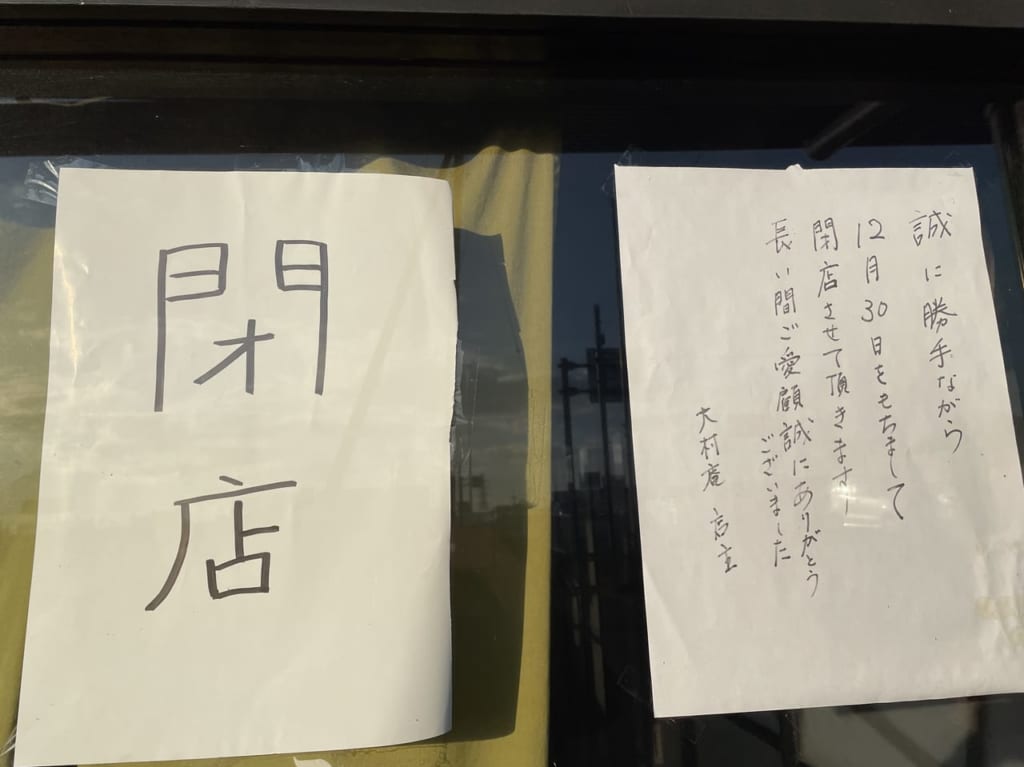 閉店
誠に勝手ながら
12月30日をもちまして
閉店させて頂きます
長い間ご愛顧誠にありがとう
ございました
大村庵 店主